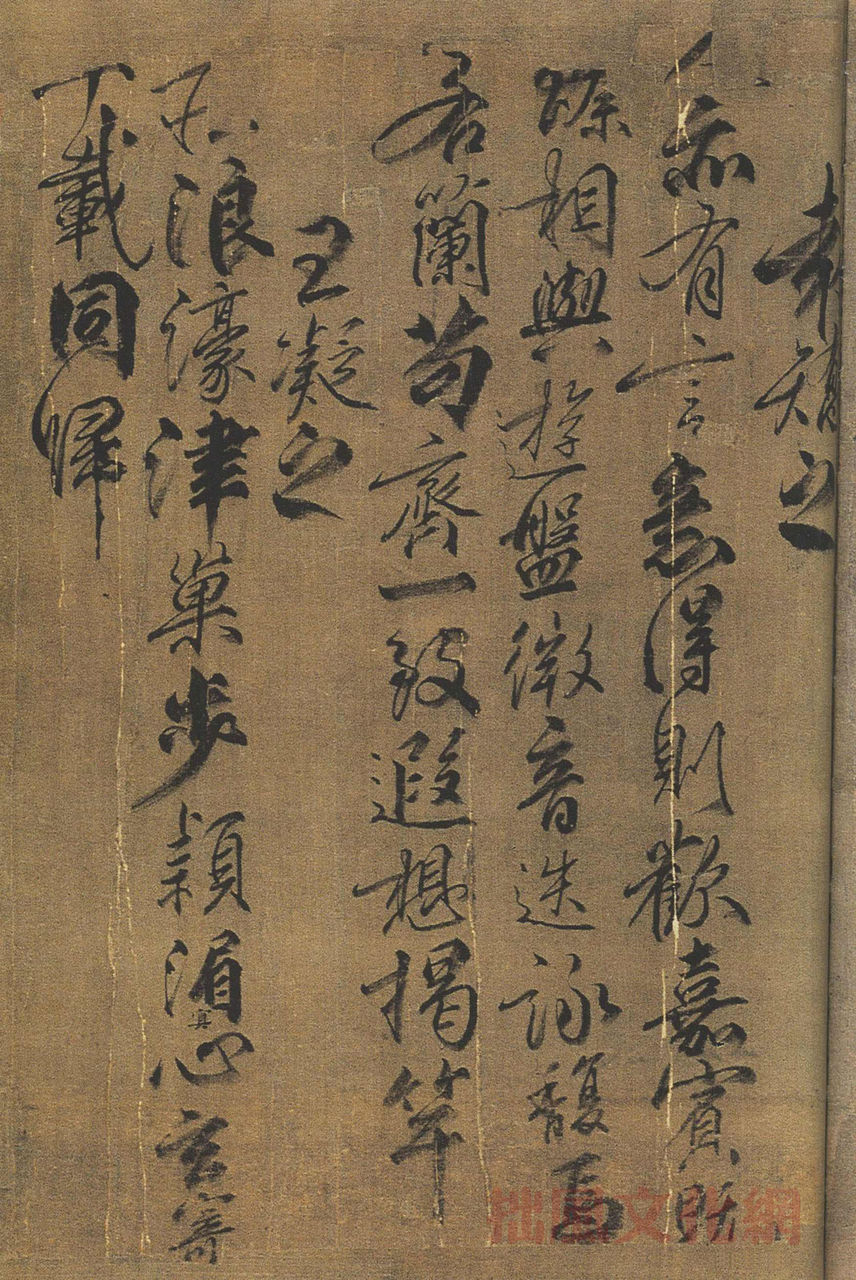 袁矯之
人亦有言意得則歡嘉賓既
臻相與遊盤微音迭詠馥焉
若蘭苟齊一致遐想揭竿
王凝之
莊浪濠津巢步潁湄冥心玄寄
千載同歸
拙風文化網